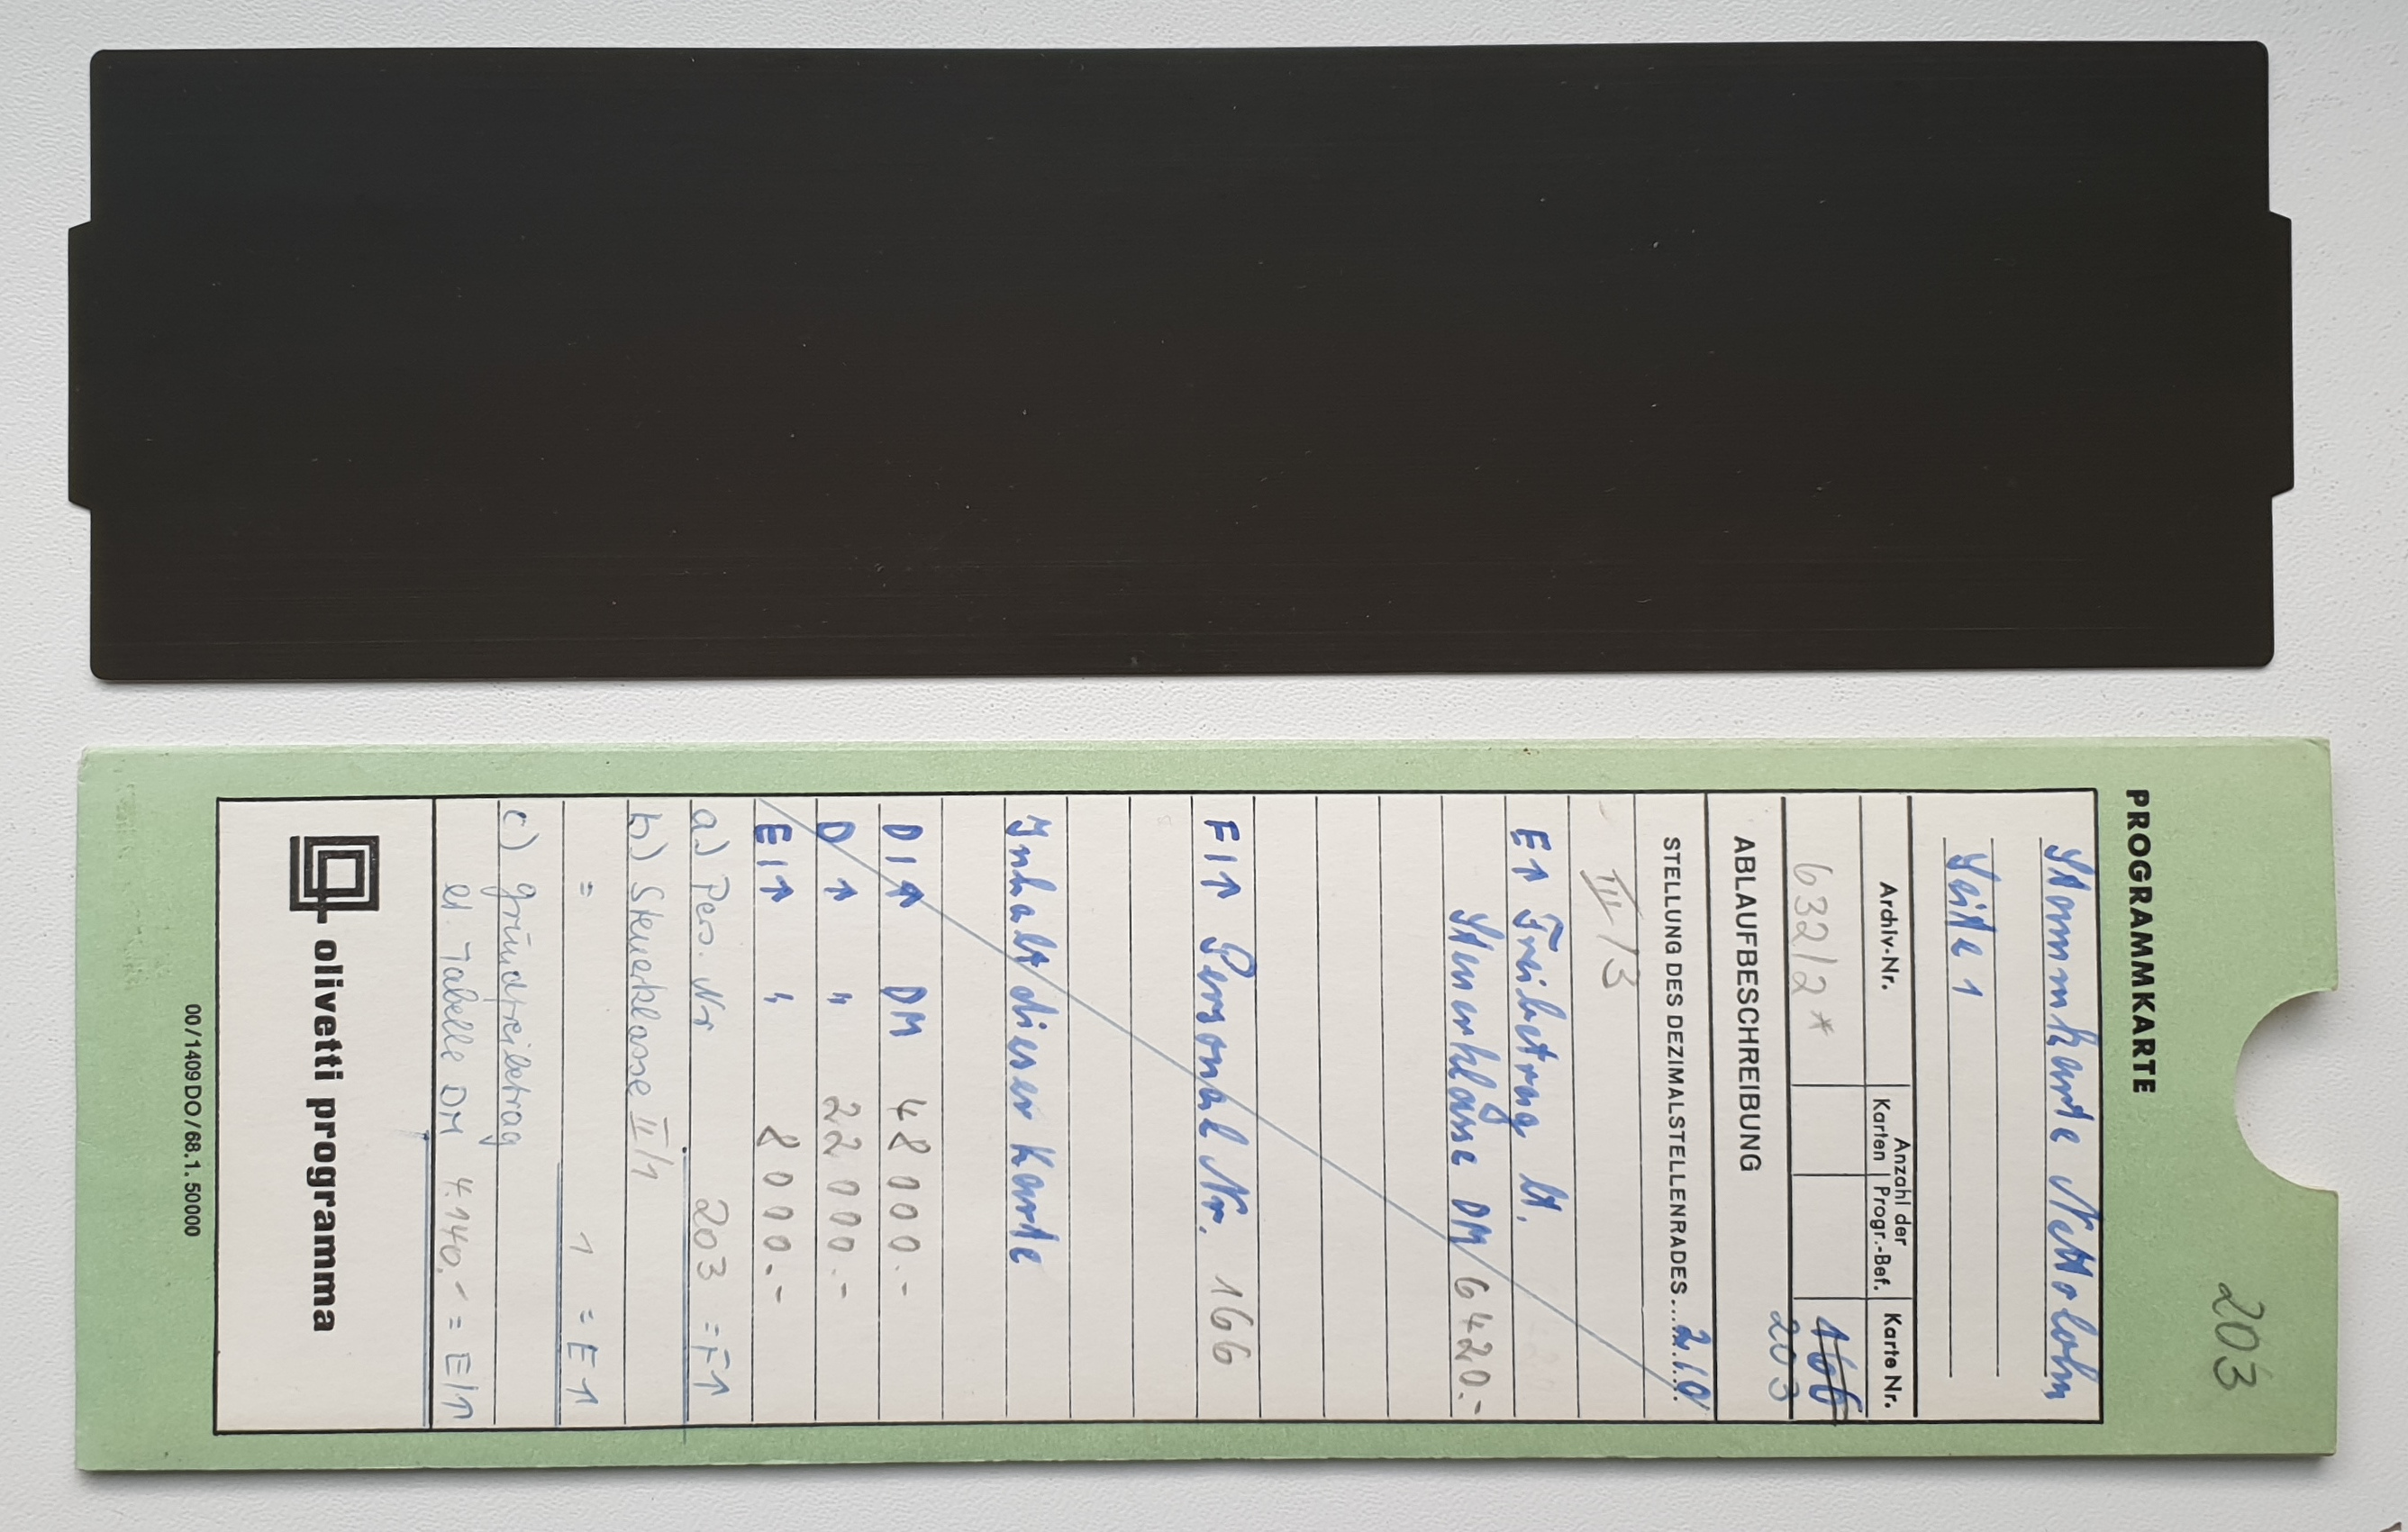 203
PROGRAMMKARTE
Stammkarte Nettolohn
Seite 1
Archiv-Nr.
Anzahl der
Karten
Progr.-Bef.
Karte Nr.
632/2*
166
203
ABLAUFBESCHREIBUNG
STELLUNG DES DEZIMALSTELLENRADES....2/0....
III/3
E↑ Freibetrag lt.
Steuerklasse DM 6420.-
F/↑ Personal Nr. 166
Inhalt dieser Karte
D/↑ DM 48000.-
D↑ " 22000.-
E/↑ " 8000.-
a.) Pers. Nr 203 = F↑
b) Steuerklasse II/1
= 1 = E↑
c) grundfreibetrag
el. Tabelle DM 4.140,- = E/↑
olivetti programma
00/1409 DO/68.1. 50000